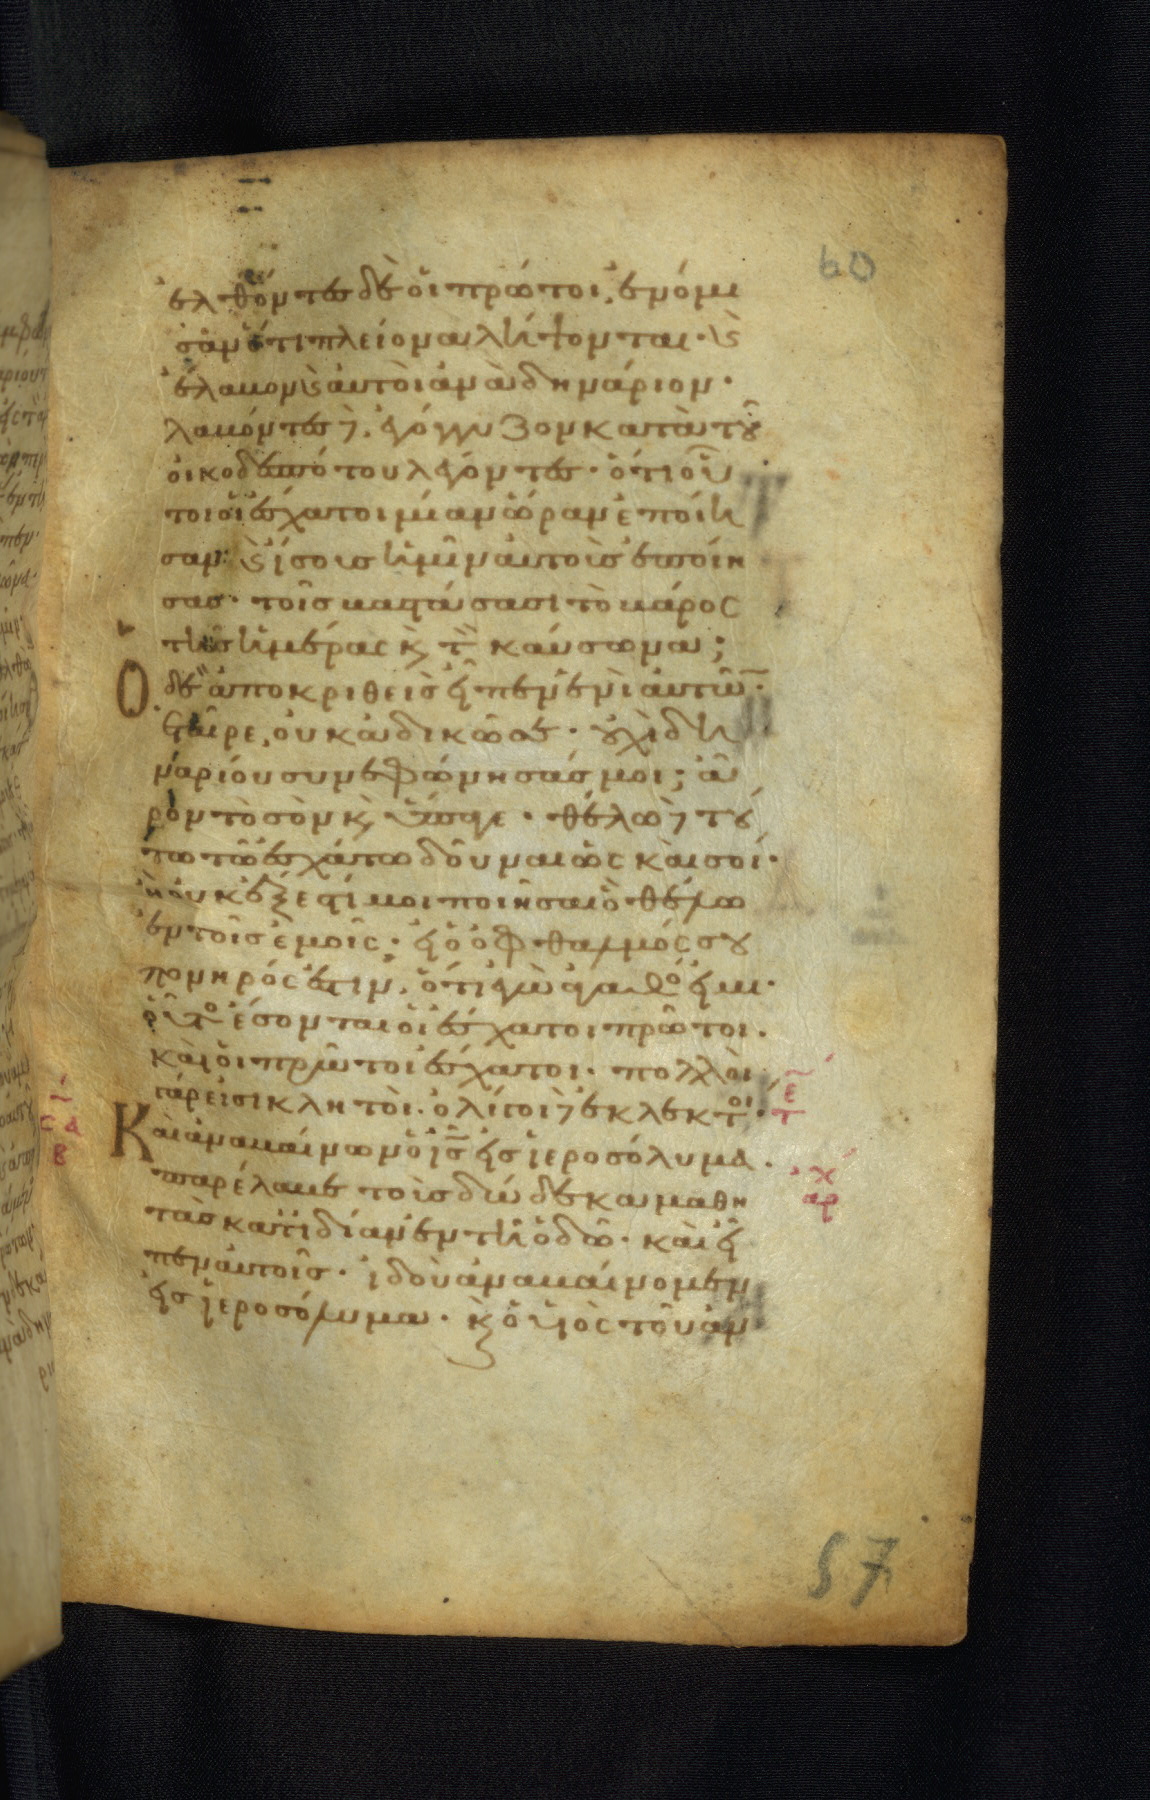 60
ἐλθόντες δὲ οἱ πρῶτοι, ἐνόμι
σαν ὅτι πλείονα λήψονται· ϗ
ἔλαβον ϗ αὐτοὶ ἀνὰ δηνάριον·
λαβόντες δὲ, ἐγόγγυζον κατὰ τοῦ
οἰκοδεσπότου λέγοντες· ὅτι οὗ
τοι οἱ ἔσχατοι μίαν ὥραν ἐποίη
σαν· ϗ ἴσους ἡμῖν αὐτοὺς ἐποίη
σας· τοῖς βαστάσασι τὸ βάρος
τῆς ἡμέρας ϗ τὸν καύσωνα;
Ὁ δὲ ἀποκριθεὶς εἶπεν ἑνὶ αὐτῶν·
ἑταῖρε, οὐκ ἀδικῶ σε· οὐχὶ δη
ναρίου συνεφώνησάς μοι; ἆ
ρον τὸ σὸν ϗ ὕπαγε· θέλω δὲ τού
τω τῶ ἐσχάτω δοῦναι ὡς καὶ σοί·
ἢ οὐκ ἔξεστί μοι ποιῆσαι ὃ θέλω
ἐν τοῖς ἐμοῖς· εἰ ὁ ὀφθαλμός σου
πονηρός ἐστιν, ὅτι ἐγὼ ἀγαθός εἰμι·
οὕτως ἔσονται οἱ ἔσχατοι πρῶτοι·
καὶ οἱ πρῶτοι ἔσχατοι· πολλοὶ
γάρ εἰσι κλητοὶ· ὀλίγοι δὲ ἐκλεκτοί·
Καὶ ἀναβαίνων ὁ ις εἰς ἱεροσόλυμα·
παρέλαβε τοὺς δώδεκα μαθη
τὰς κατιδίαν ἐν τῆ ὁδῶ· καὶ εἶ
πεν αὐτοῖς· ἰδοὺ ἀναβαίνομεν
εἰς ἱεροσόλυμα· ϗ ὁ υἱὸς τοῦ ἀν
57